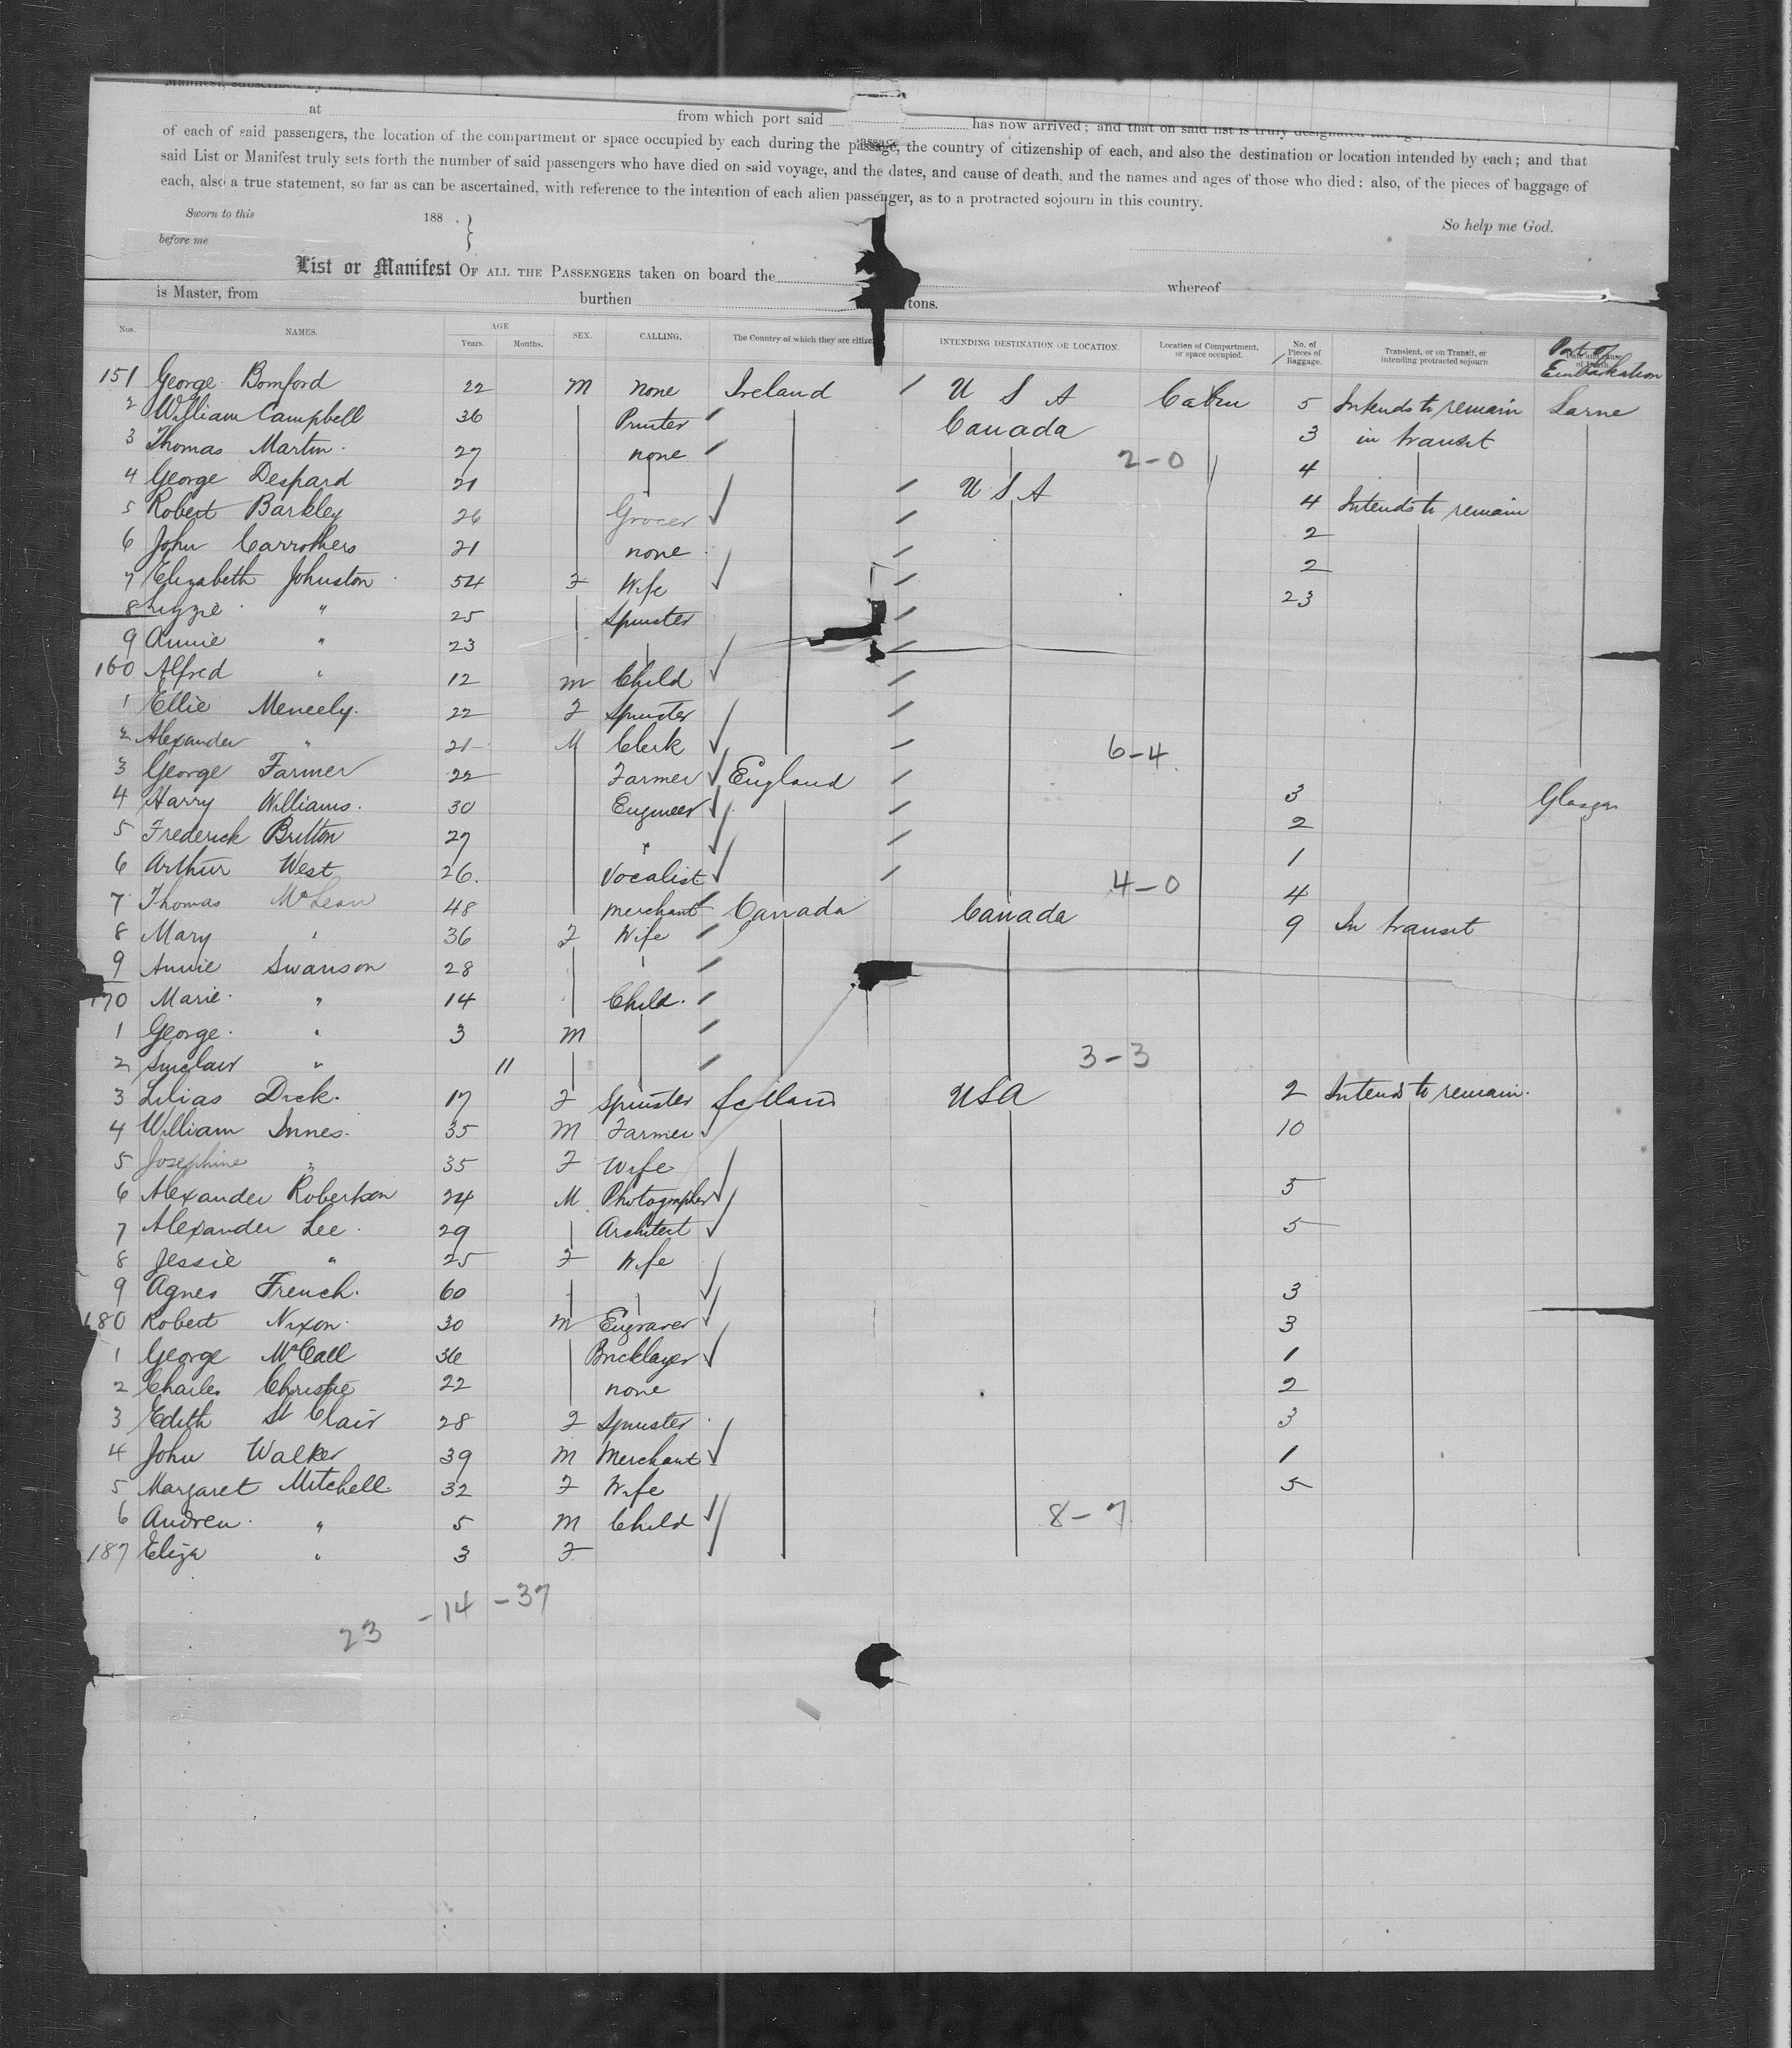 at from which port said has now arrived; and that on said list is truly designated the
of each of said passengers, the location of the compartment or space occupied by each during the passage, the country of citizenship of each, and also the destination or location intended by each; and that
said List or Manifest truly sets forth the number of said passengers who have died on said voyage, and the dates, and cause of death, and the names and ages of those who died; also, of the pieces of baggage of
each, also a true statement, so far as can be ascertained, with reference to the intention of each alien passenger, as to a protracted sojourn in this country.
Sworn to this 188 . } So help me God.
before me
List or Manifest OF ALL THE PASSENGERS taken on board the whereof
is Master, from burthen tons.
Nos. NAMES. AGE Years. Months. SEX. CALLING. The Country of which they are citizens INTENDING DESTINATION OR LOCATION. Location of Compartment, or space occupied. No. of Pieces of Baggage. Transient, or on Transit, or intending protracted sojourn Port of Embarkation
151 George Bomford 22 M none Ireland U S A Cabin 5 Intends to remain Larne
2 William Campbell 36 Printer Canada 3 in transit
3 Thomas Martin 27 none 2-0 4
4 George Despard 21 U S A 4 Intends to remain
5 Robert Barkley 26 Grocer 2
6 John Carrothers 21 none 2
7 Elizabeth Johnston 54 F Wife 23
8 Lizzie " 25 Spinster
9 Annie " 23
160 Alfred " 12 M Child
1 Ellie Meneely 22 F Spinster
2 Alexander " 21 M Clerk 6-4
3 George Farmer 22 Farmer England 3 Glasgow
4 Harry Williams 30 Engineer 2
5 Frederick Britton 27 " 1
6 Arthur West 26 Vocalist 4-0 4
7 Thomas McLean 48 Merchant Canada Canada 9 In transit
8 Mary " 36 F Wife
9 Annie Swanson 28
170 Marie " 14 Child
1 George " 3 M
2 Sinclair " 11 3-3
3 Lilias Dick 17 F Spinster Scotland USA 2 Intends to remain
4 William Innes 35 M Farmer 10
5 Josephine " 35 F Wife
6 Alexander Robertson 24 M Photographer 5
7 Alexander Lee 29 Architect 5
8 Jessie " 25 F Wife
9 Agnes French 60 3
180 Robert Nixon 30 M Engraver 3
1 George McCall 36 Bricklayer 1
2 Charles Christie 22 none 2
3 Edith St Clair 28 F Spinster 3
4 John Walker 39 M Merchant 1
5 Margaret Mitchell 32 F Wife 5
6 Andrew " 5 M Child 8-7
187 Eliza " 3 F
23 - 14 - 37